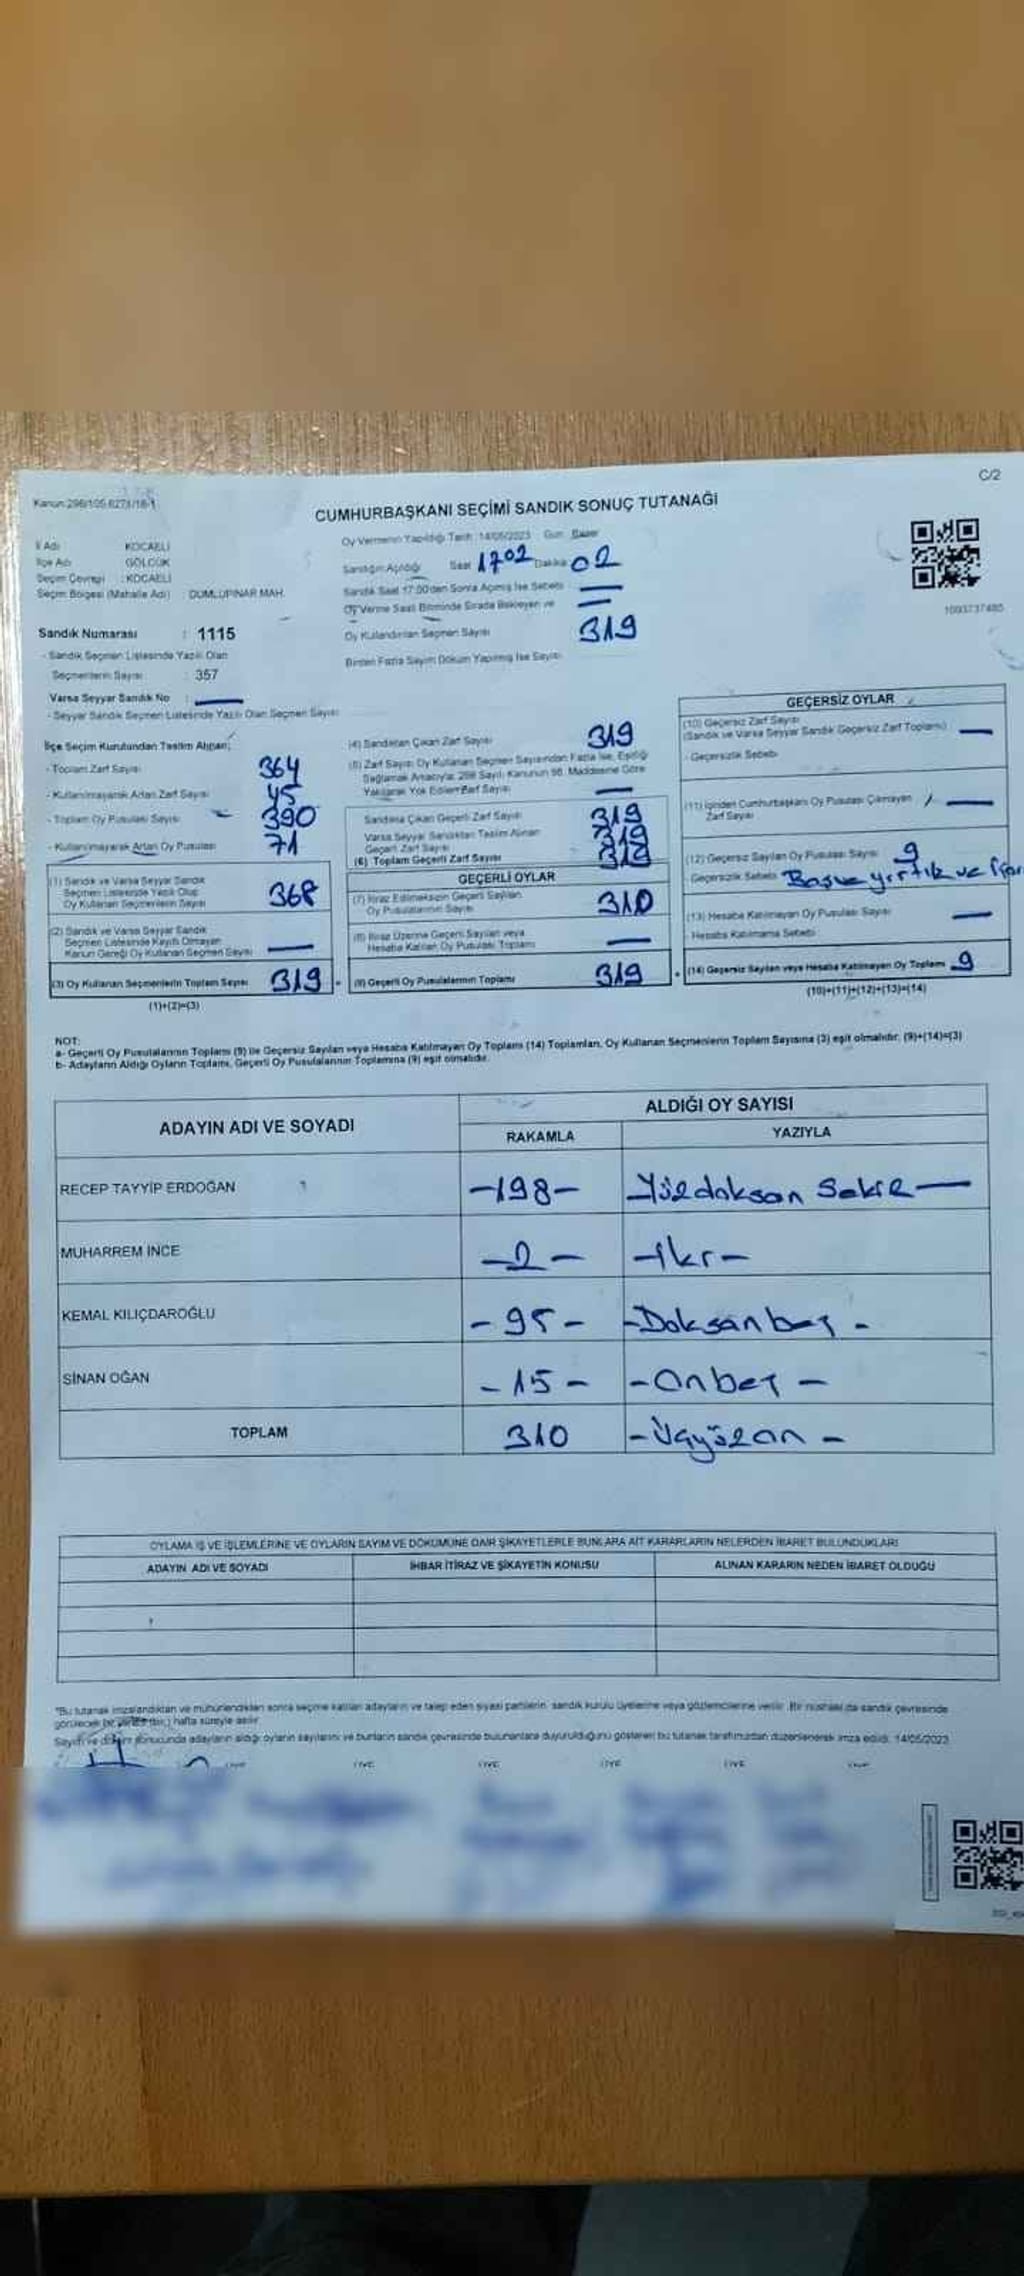 C/2
Kanun:298/105-6271/18-1
CUMHURBAŞKANI SEÇİMİ SANDIK SONUÇ TUTANAĞI
İl Adı KOCAELİ
İlçe Adı GÖLCÜK
Seçim Çevresi : KOCAELİ
Seçim Bölgesi (Mahalle Adı) : DUMLUPINAR MAH.
Oy Vermenin Yapıldığı Tarih : 14/05/2023 Gün : Pazar
Sandığın Açıldığı Saat 1702 Dakika 02
Sandık Saat 17:00'den Sonra Açılmış İse Sebebi —
Oy Verme Saati Bitiminde Sırada Bekleyen ve —
Oy Kullandırılan Seçmen Sayısı 319
Birden Fazla Sayım Döküm Yapılmış İse Sayısı
1093737485
Sandık Numarası : 1115
- Sandık Seçmen Listesinde Yazılı Olan
Seçmenlerin Sayısı : 357
Varsa Seyyar Sandık No : —
- Seyyar Sandık Seçmen Listesinde Yazılı Olan Seçmen Sayısı
İlçe Seçim Kurulundan Teslim Alınan;
- Toplam Zarf Sayısı 364
- Kullanılmayarak Artan Zarf Sayısı 45
- Toplam Oy Pusulası Sayısı 390
- Kullanılmayarak Artan Oy Pusulası 71
(1) Sandık ve Varsa Seyyar Sandık
Seçmen Listesinde Yazılı Olup
Oy Kullanan Seçmenlerin Sayısı 368
(2) Sandık ve Varsa Seyyar Sandık
Seçmen Listesinde Kayıtlı Olmayan
Kanun Gereği Oy Kullanan Seçmen Sayısı —
(3) Oy Kullanan Seçmenlerin Toplam Sayısı 319
(1)+(2)=(3)
(4) Sandıktan Çıkan Zarf Sayısı 319
(5) Zarf Sayısı Oy Kullanan Seçmen Sayısından Fazla İse, Eşitliği
Sağlamak Amacıyla; 298 Sayılı Kanunun 98. Maddesine Göre
Yakılarak Yok Edilen Zarf Sayısı —
Sandıkta Çıkan Geçerli Zarf Sayısı 319
Varsa Seyyar Sandıktan Teslim Alınan
Geçerli Zarf Sayısı
(6) Toplam Geçerli Zarf Sayısı
GEÇERLİ OYLAR
(7) İtiraz Edilmeksizin Geçerli Sayılan
Oy Pusulalarının Sayısı 310
(8) İtiraz Üzerine Geçerli Sayılan veya
Hesaba Katılan Oy Pusulası Toplamı —
(9) Geçerli Oy Pusulalarının Toplamı 319
GEÇERSİZ OYLAR
(10) Geçersiz Zarf Sayısı
(Sandık ve Varsa Seyyar Sandık Geçersiz Zarf Toplamı) —
- Geçersizlik Sebebi
(11) İçinden Cumhurbaşkanı Oy Pusulası Çıkmayan
Zarf Sayısı —
(12) Geçersiz Sayılan Oy Pusulası Sayısı 9
Geçersizlik Sebebi yırtık ve
(13) Hesaba Katılmayan Oy Pusulası Sayısı —
- Hesaba Katılmama Sebebi
(14) Geçersiz Sayılan veya Hesaba Katılmayan Oy Toplamı 9
(10)+(11)+(12)+(13)=(14)
NOT:
a- Geçerli Oy Pusulalarının Toplamı (9) ile Geçersiz Sayılan veya Hesaba Katılmayan Oy Toplamı (14) Toplamları, Oy Kullanan Seçmenlerin Toplam Sayısına (3) eşit olmalıdır. (9)+(14)=(3)
b- Adayların Aldığı Oyların Toplamı, Geçerli Oy Pusulalarının Toplamına (9) eşit olmalıdır.
ADAYIN ADI VE SOYADI ALDIĞI OY SAYISI
RAKAMLA YAZIYLA
RECEP TAYYİP ERDOĞAN -198- -Yüzdoksan Sekiz-
MUHARREM İNCE -2- -iki-
KEMAL KILIÇDAROĞLU -95- -Doksanbeş-
SİNAN OĞAN -15- -Onbeş-
TOPLAM 310 -Üçyüzon-
OYLAMA İŞ VE İŞLEMLERİNE VE OYLARIN SAYIM VE DÖKÜMÜNE DAİR ŞİKAYETLERLE BUNLARA AİT KARARLARIN NELERDEN İBARET BULUNDUKLARI
ADAYIN ADI VE SOYADI İHBAR İTİRAZ VE ŞİKAYETİN KONUSU ALINAN KARARIN NEDEN İBARET OLDUĞU
*Bu tutanak imzalandıktan ve mühürlendikten sonra seçime katılan adayların ve talep eden siyasi partilerin, sandık kurulu üyelerine veya gözlemcilerine verilir. Bir nüshası da sandık çevresinde
görülecek bir yerde (bir) hafta süreyle asılır.
Sayım ve döküm sonucunda adayların aldığı oyların sayılarını ve bunların sandık çevresinde bulunanlara duyurulduğunu gösteren bu tutanak tarafımızdan düzenlenerek imza edildi. 14/05/2023
ÜYE ÜYE ÜYE ÜYE ÜYE